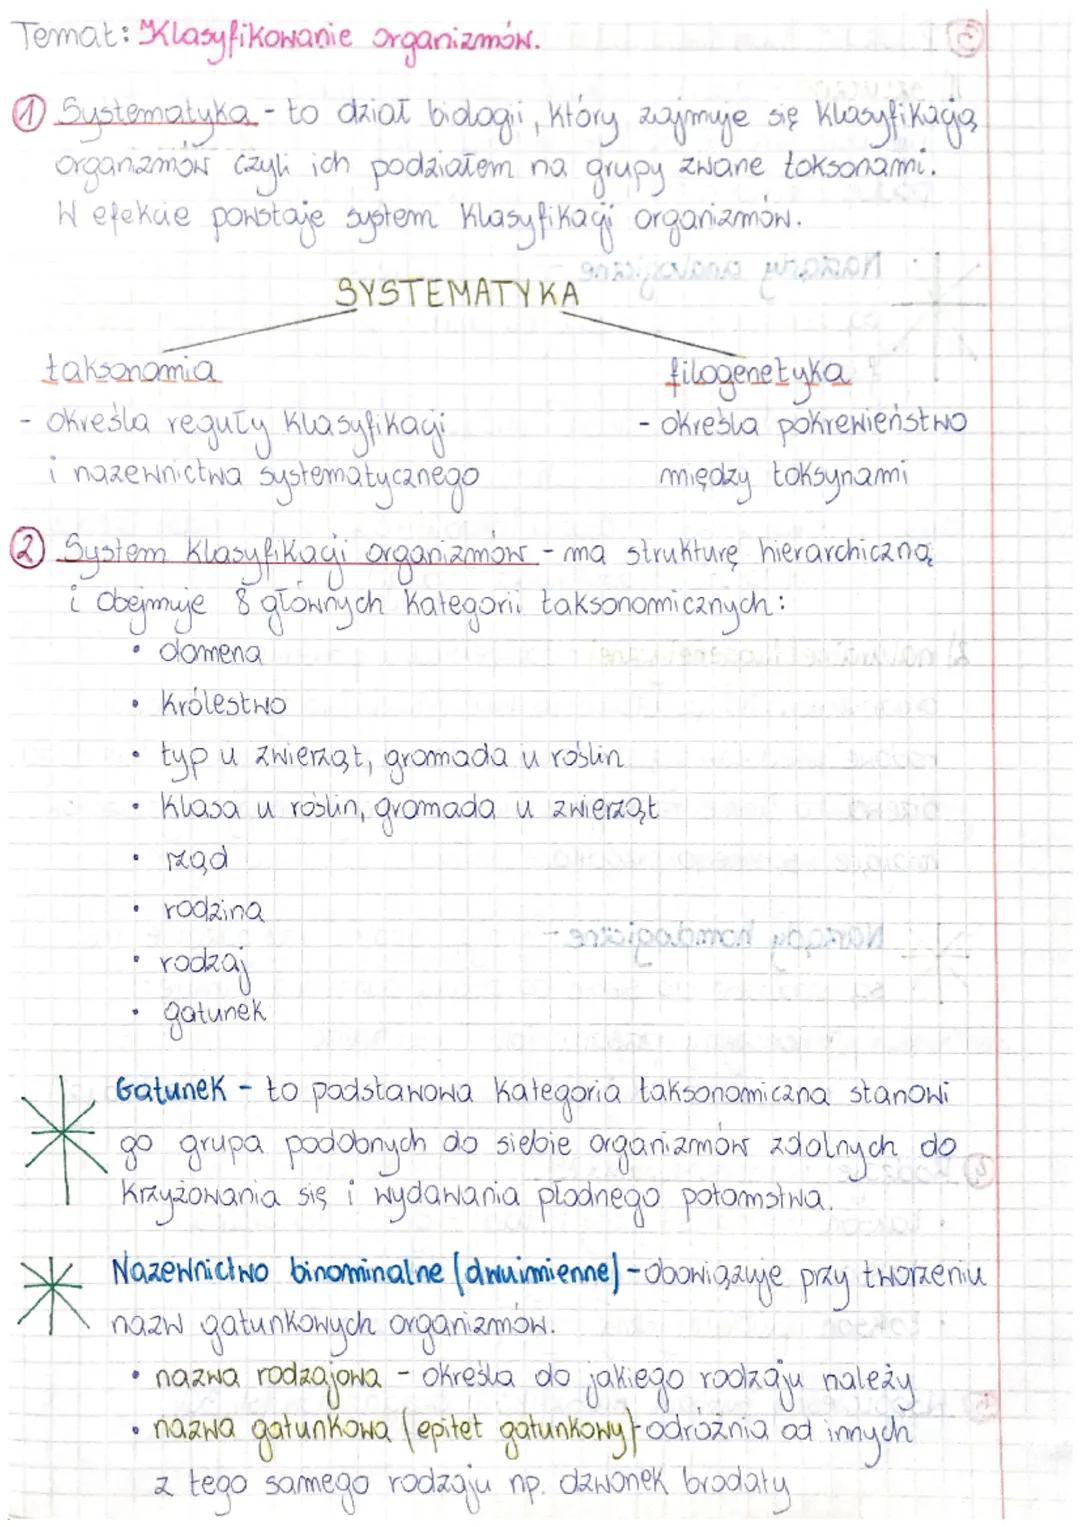 Temat: Klasyfikowanie organizmów.
① Systematyka - to dział biologii, który zajmuje się klasyfikacją
organizmów czyli ich podziałem na grupy zwane toksonami.
W efekcie powstaje system klasyfikacji organizmów.
SYSTEMATYKA
taksonomia
- określa reguły klasyfikacji
i nazewnictwa systematycznego
filogenetyka
- określa pokrewieństwo
między toksynami
② System klasyfikacji organizmów - ma strukturę hierarchiczną
i obejmuje 8 głównych kategorii taksonomicznych:
• domena
• królestwo
• typ u zwierząt, gromada u roślin
• klasa u roślin, gromada u zwierząt
• rząd
• rodzina
• rodzaj
• gatunek
Gatunek - to podstawowa kategoria taksonomiczna stanowi
go grupa podobnych do siebie organizmów zdolnych do
krzyżowania się i wydawania płodnego potomstwa.
Nazewnictwo binominalne (dwuimienne) - obowiązuje przy tworzeniu
nazw gatunkowych organizmów.
• nazwa rodzajowa - określa do jakiego rodzaju należy
• nazwa gatunkowa (epitet gatunkowy) - odróżnia od innych
z tego samego rodzaju np. dzwonek brodaty